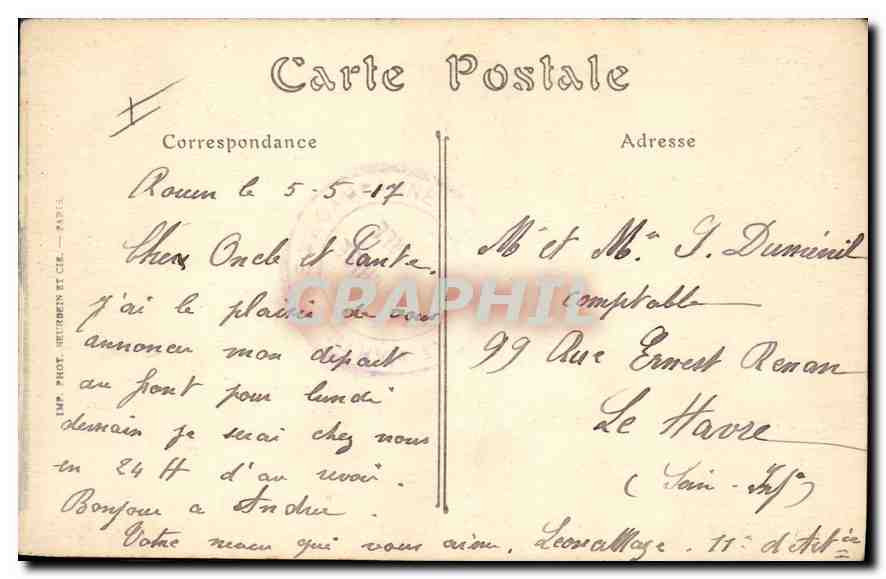 Carte Postale
Correspondance
Rouen le 5-5-17
Chers Oncle et Tante,
J'ai le plaisir de vous
annoncer mon départ
au front pour lundi
demain je serai chez nous
en 24 H d'au revoir.
Bonjour a André.
Votre neveu qui vous aime. 11e d'Artie
Adresse
Mr et Me J. Duménil
Comptable
99 Rue Ernest Renan
Le Havre
(Sein-Infre)
IMP. PHOT. NEURDEIN ET CIE. — PARIS.
CPRAPHIL